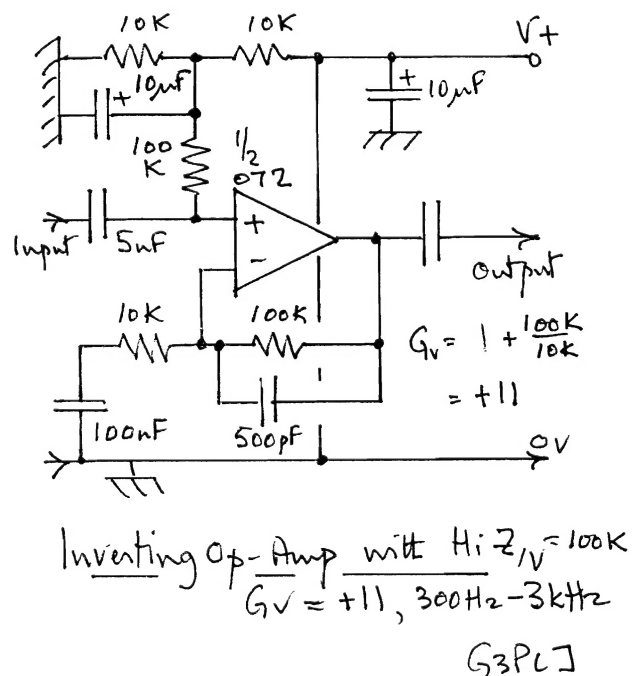 10K
10K
V+
+
10µF
+
10µF
100
K
1/2
072
+
-
Input
5nF
Output
10K
100K
Gv = 1 + 100K/10K
= +11
100nF
500pF
0V
Inverting Op-Amp with Hi Z/N = 100K
Gv = +11, 300Hz-3kHz
G3PCJ